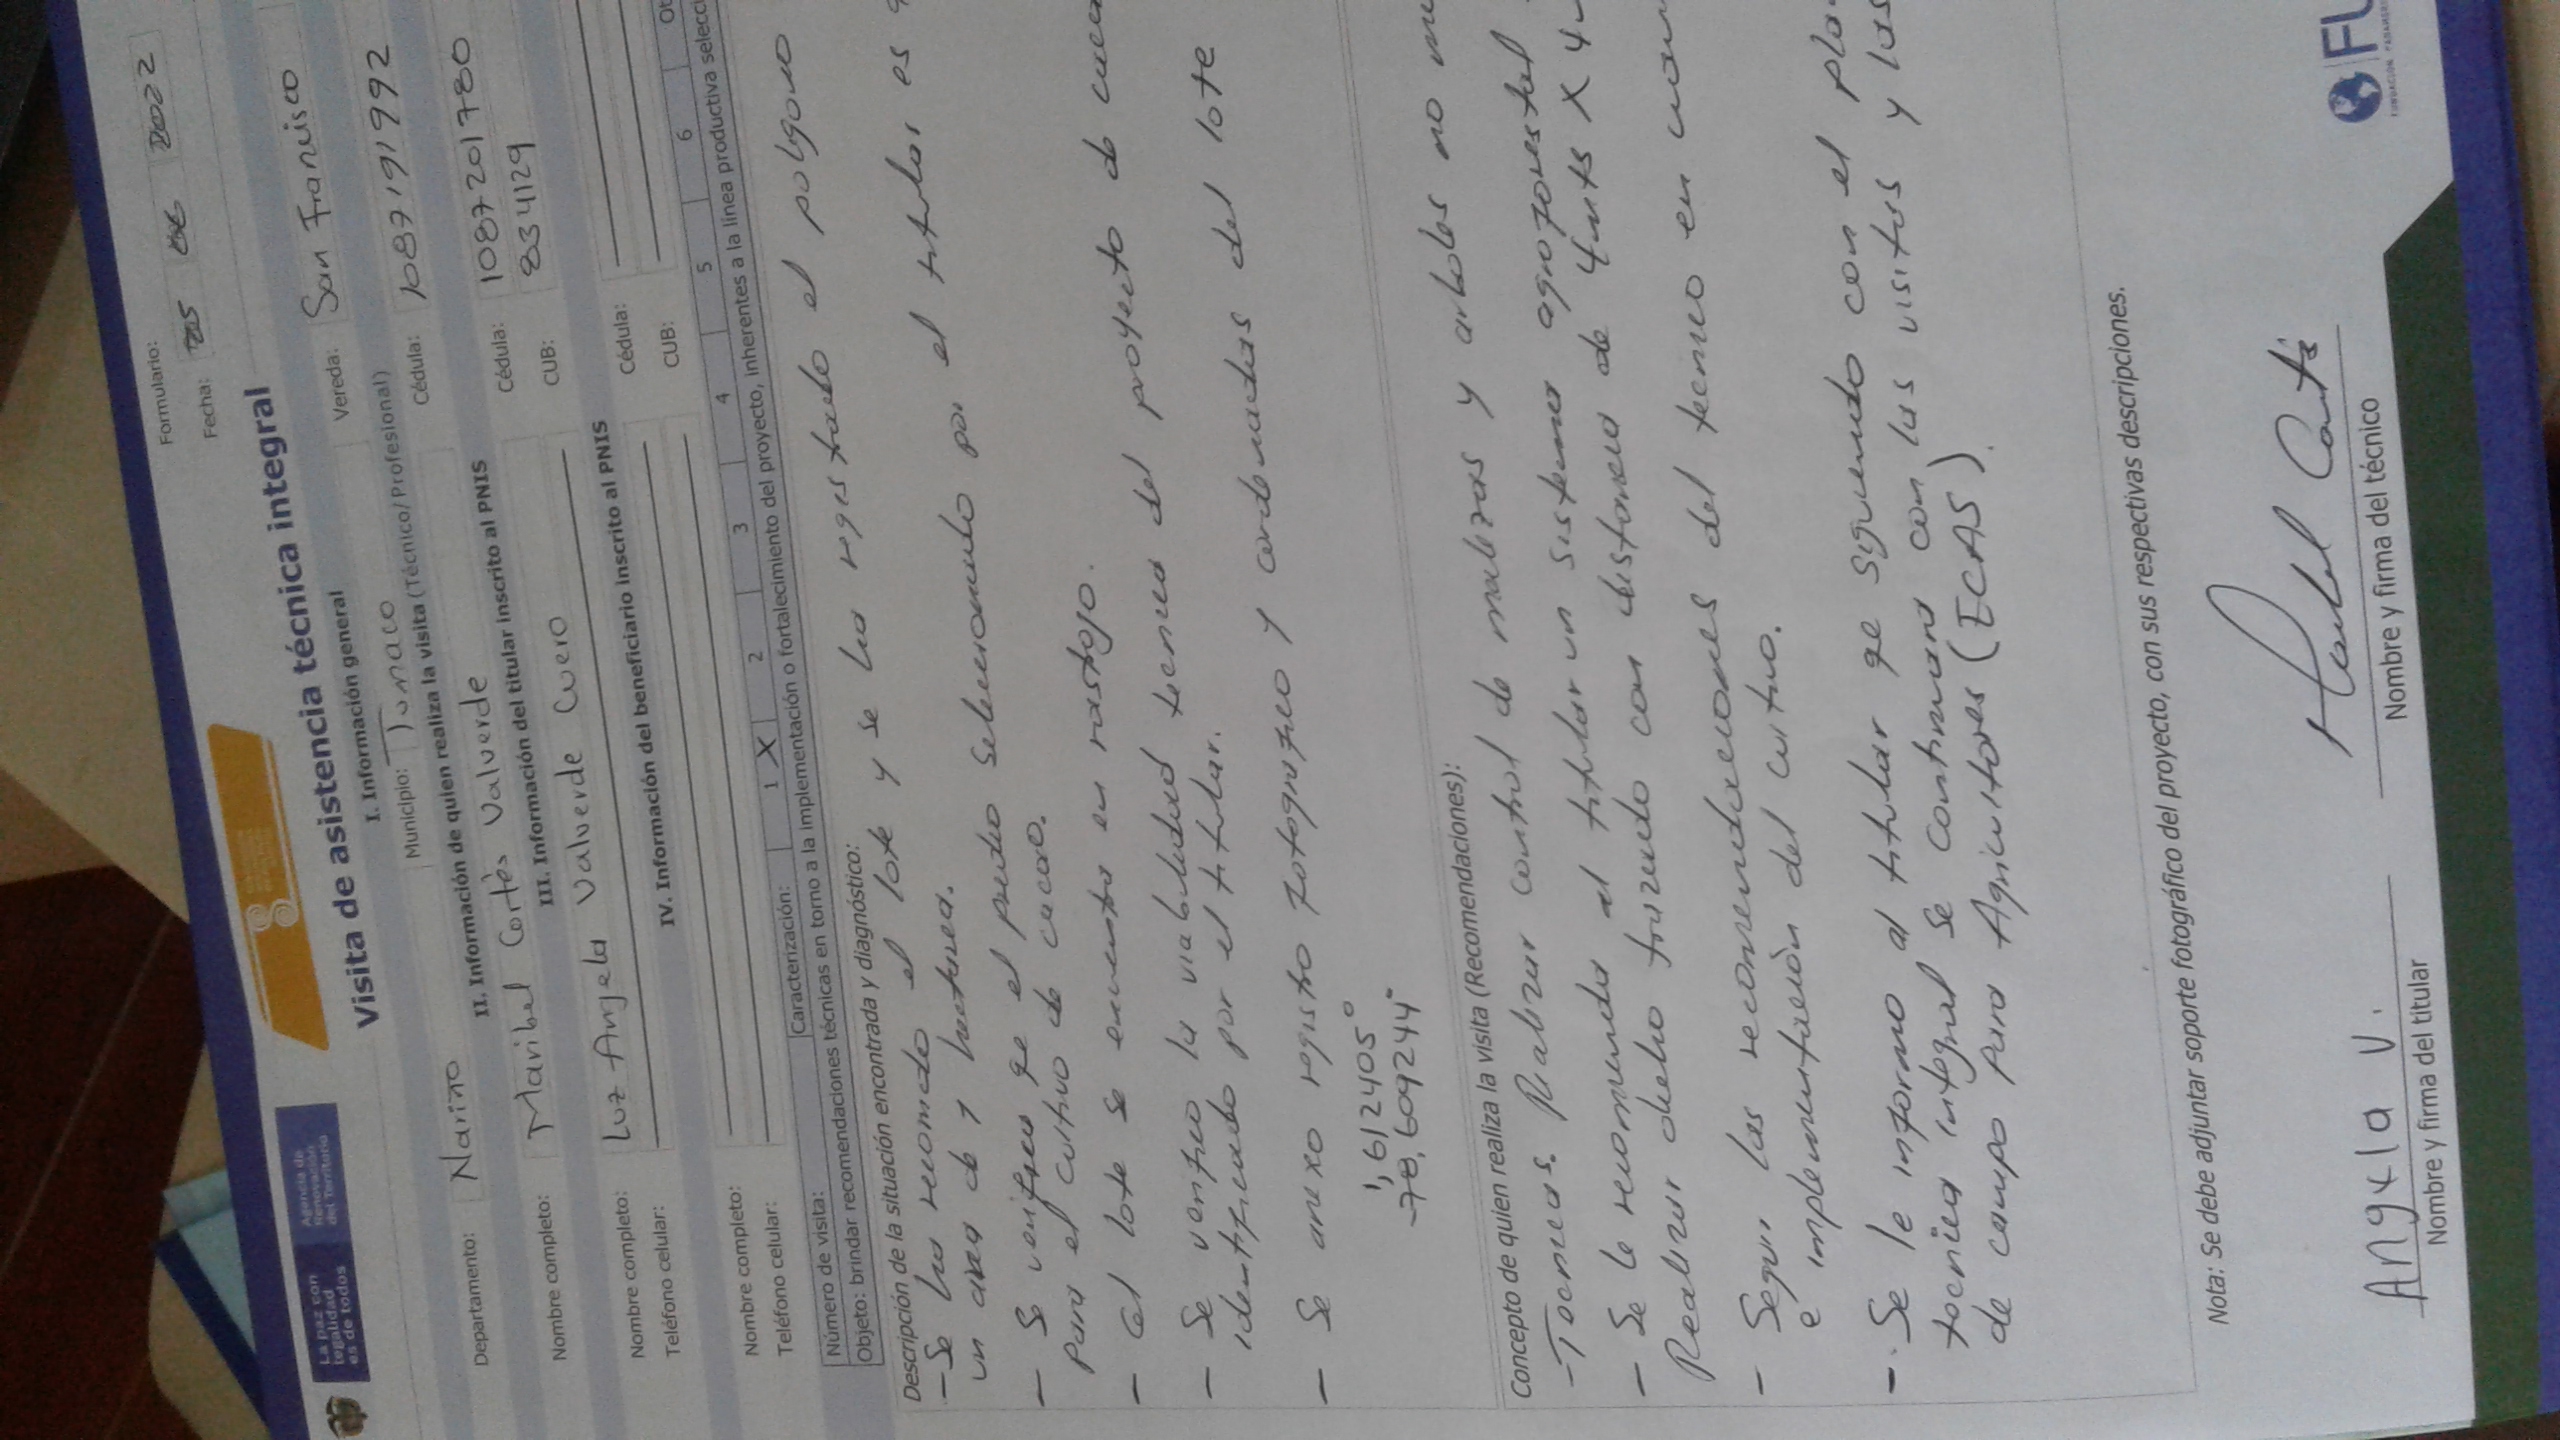 La paz con
legalidad
es de todos
Agencia de
Renovación
del Territorio
Formulario:
Fecha: 25 06 2022
Visita de asistencia técnica integral
I. Información general
Departamento: Nariño Municipio: Tumaco Vereda: San Francisco
II. Información de quien realiza la visita (Técnico/Profesional)
Nombre completo: Maribel Cortès Valverde Cédula: 1087191992
III. Información del titular inscrito al PNIS
Nombre completo: Luz Angela Valverde Cuero Cédula: 1087201780
Teléfono celular: CUB: 834129
IV. Información del beneficiario inscrito al PNIS
Nombre completo: Cédula:
Teléfono celular: CUB:
Número de visita: Caracterización: 1 X 2 3 4 5 6 Ot
Objeto: brindar recomendaciones técnicas en torno a la implementación o fortalecimiento del proyecto, inherentes a la línea productiva selecci
Descripción de la situación encontrada y diagnóstico:
- Se ha recorrido el lote y se ha registrado el poligono
un area de 1 hectarea.
- Se verifico qe el predio seleccionado por el titular es
para el cultivo de cacao.
- el lote se encuentra en rastrojo.
- Se verifico la viabilidad tecnica del proyecto de cacao
identificado por el titular.
- Se anexo registro fotografico y cordenadas del lote
1,612405°
-78,609244°
Concepto de quien realiza la visita (Recomendaciones):
- Tocnicas. Realizar control de malezas y arboles no
- Se le recomienda al titular un sistema agroforestal
Realizar dicho trazado con distancia de 4mts X 4
- Seguir las recomendaciones del tecnico en
e implementación del cultivo.
- Se le informo al titular qe siguiendo con el pla
tocnica integral se continuara con las visitas y las
de campo para Agricultores (ECAS).
Nota: Se debe adjuntar soporte fotográfico del proyecto, con sus respectivas descripciones.
Angela V.
Nombre y firma del titular
Maribel Cortès
Nombre y firma del técnico
FU
FUNDACIÓN PANAMER